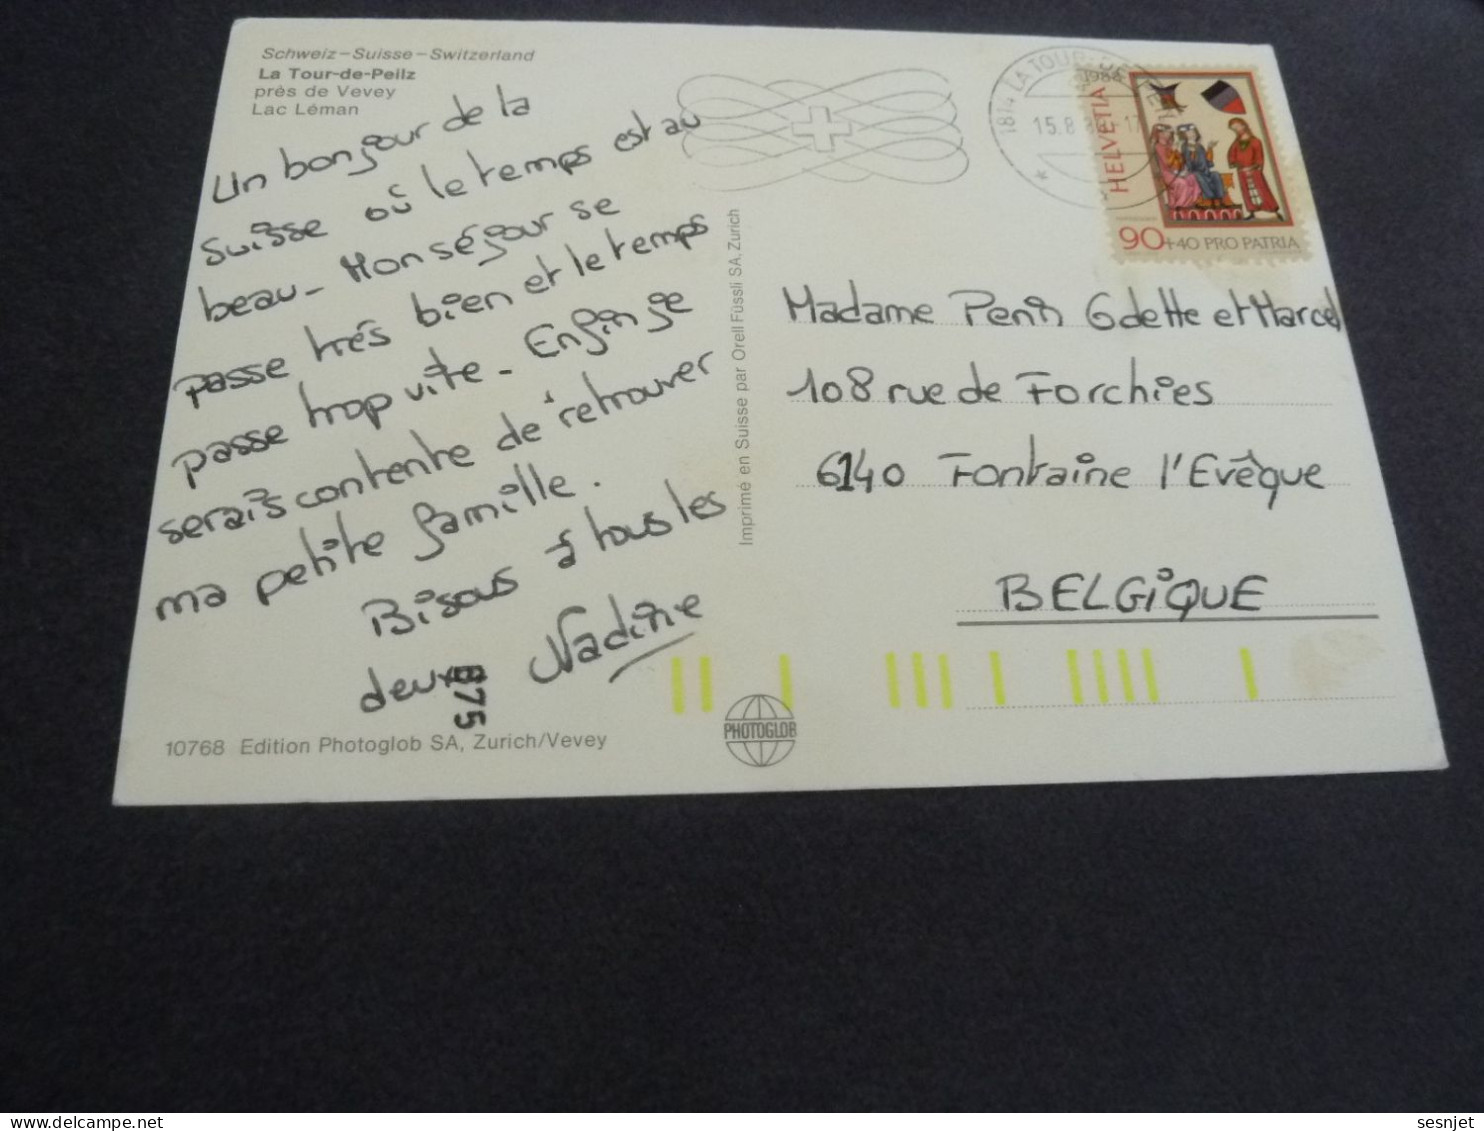 Schweiz – Suisse – Switzerland
La Tour-de-Peilz
près de Vevey
Lac Léman
Un bonjour de la
suisse où le temps est au
beau - Mon séjour se
passe très bien et le temps
passe trop vite - Enfin je
serais contente de retrouver
ma petite famille.
Bisous à tous les
deux Nadine
B75
10768 Edition Photoglob SA, Zurich/Vevey
Imprimé en Suisse par Orell Füssli SA, Zurich
PHOTOGLOB
1814 LA TOUR-DE-PEILZ
15.8
HELVETIA
1988
90+40 PRO PATRIA
Madame Penin Odette et Marcel
108 rue de Forchies
6140 Fontaine l'Evêque
BELGIQUE